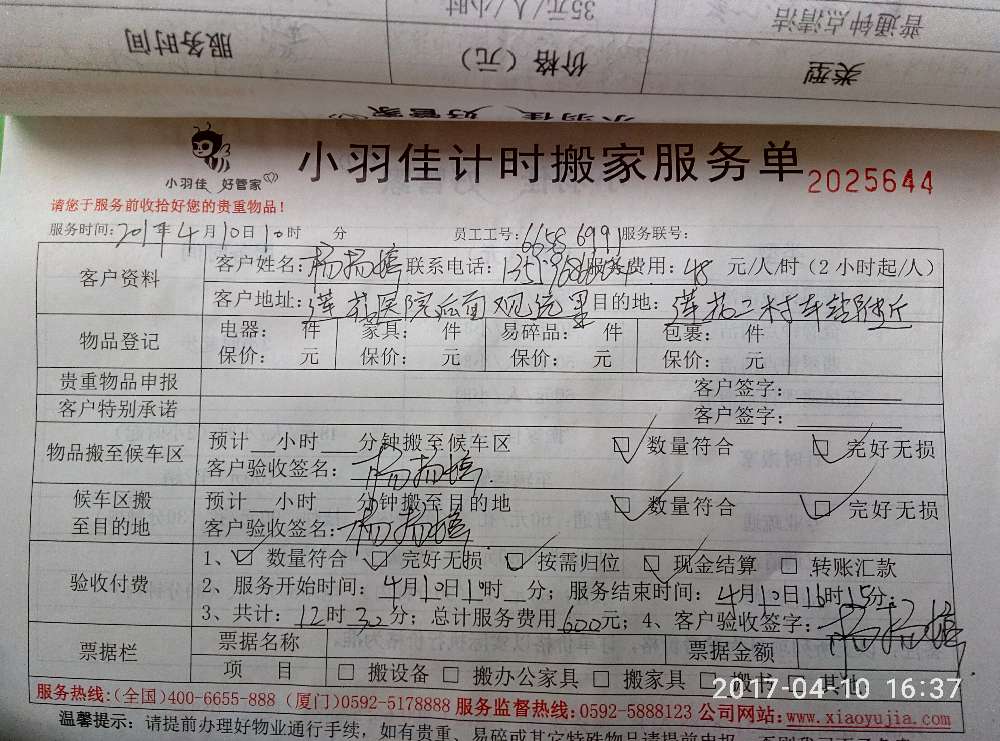 35元/人/小时
普通钟点清洁
服务时间
价格（元）
类型
小羽佳 好管家
小羽佳 好管家
小羽佳计时搬家服务单 2025644
请您于服务前收拾好您的贵重物品！
服务时间: 4月10日10时 分 员工工号: 6658 6991 服务联号:
客户资料
客户姓名: 联系电话: 服务费用: 48 元/人/时（2小时起/人）
客户地址: 莲花医院后面观远里 目的地: 莲花二村车站附近
物品登记
电器: 件 家具: 件 易碎品: 件 包裹: 件
保价: 元 保价: 元 保价: 元 保价: 元
贵重物品申报 客户签字:
客户特别承诺 客户签字:
物品搬至候车区
预计__小时___分钟搬至候车区 数量符合 完好无损
客户验收签名:
候车区搬至目的地
预计__小时___分钟搬至目的地 数量符合 完好无损
客户验收签名:
验收付费
1、 数量符合 完好无损 按需归位 现金结算 转账汇款
2、服务开始时间: 4月10日10时__分; 服务结束时间: 4月10日16时15分;
3、共计: 12时30分; 总计服务费用600元; 4、客户验收签字:
票据栏
票据名称 票据金额
项 目 搬设备 搬办公家具 搬家具 搬书 其他
2017-04-10 16:37
服务热线:(全国)400-6655-888 (厦门)0592-5178888 服务监督热线:0592-5888123 公司网站:www.xiaoyujia.com
温馨提示: 请提前办理好物业通行手续, 如有贵重、易碎或其它特殊物品请提前申报